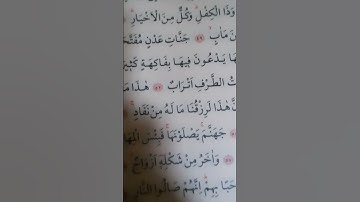 وَذَا الْكِفْلِ وَكُلٌّ مِنَ الْاَخْيَارِ
مَاٰبٍ ﴿٤٩﴾ جَنَّاتِ عَدْنٍ
يَدْعُونَ فِيهَا بِفَاكِهَةٍ
الطَّرْفِ اَتْرَابٌ ﴿٥٢﴾ هٰذَا
هٰذَا لَرِزْقُنَا مَا لَهُ مِنْ نَفَادٍ
جَهَنَّمَ يَصْلَوْنَهَا فَبِئْسَ
وَاٰخَرُ مِنْ شَكْلِهٖ اَزْوَاجٌ
بِهِمْ اِنَّهُمْ صَالُوا النَّارِ